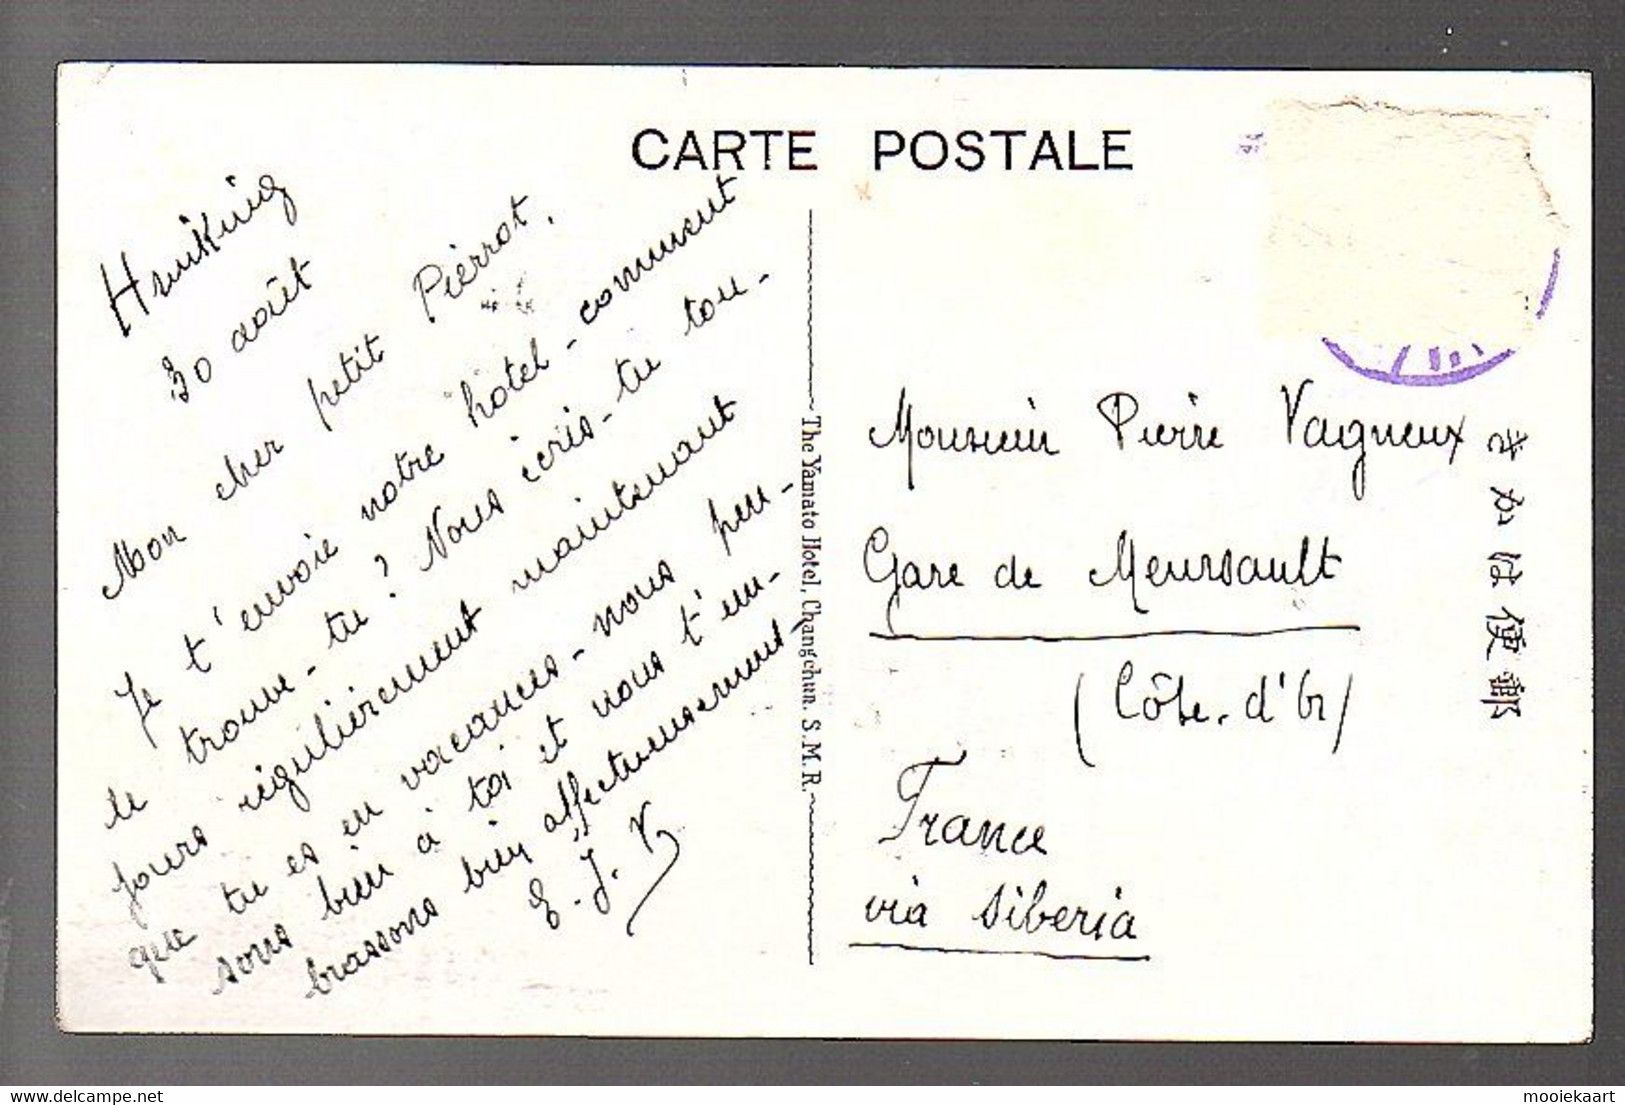 CARTE POSTALE
Hsinking
30 août
Mon cher petit Pierrot.
Je t'envoie notre hôtel - comment
le trouve-tu ? Nous écris-tu tou-
jours régulièrement maintenant
que tu es en vacances - nous pen-
sons bien à toi et nous t'em-
brassons bien affectueusement
E. J. V
The Yamato Hotel, Changchun. S.M.R.
Monsieur Pierre Vagneux
Gare de Meursault
(Côte. d'Or)
France
via Siberia
きかは便郵
mooiekaart